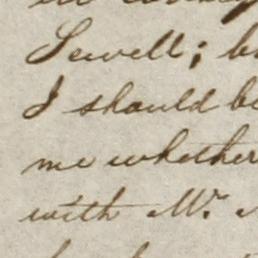 Sewell; b
I should be
me whether
with Mr.